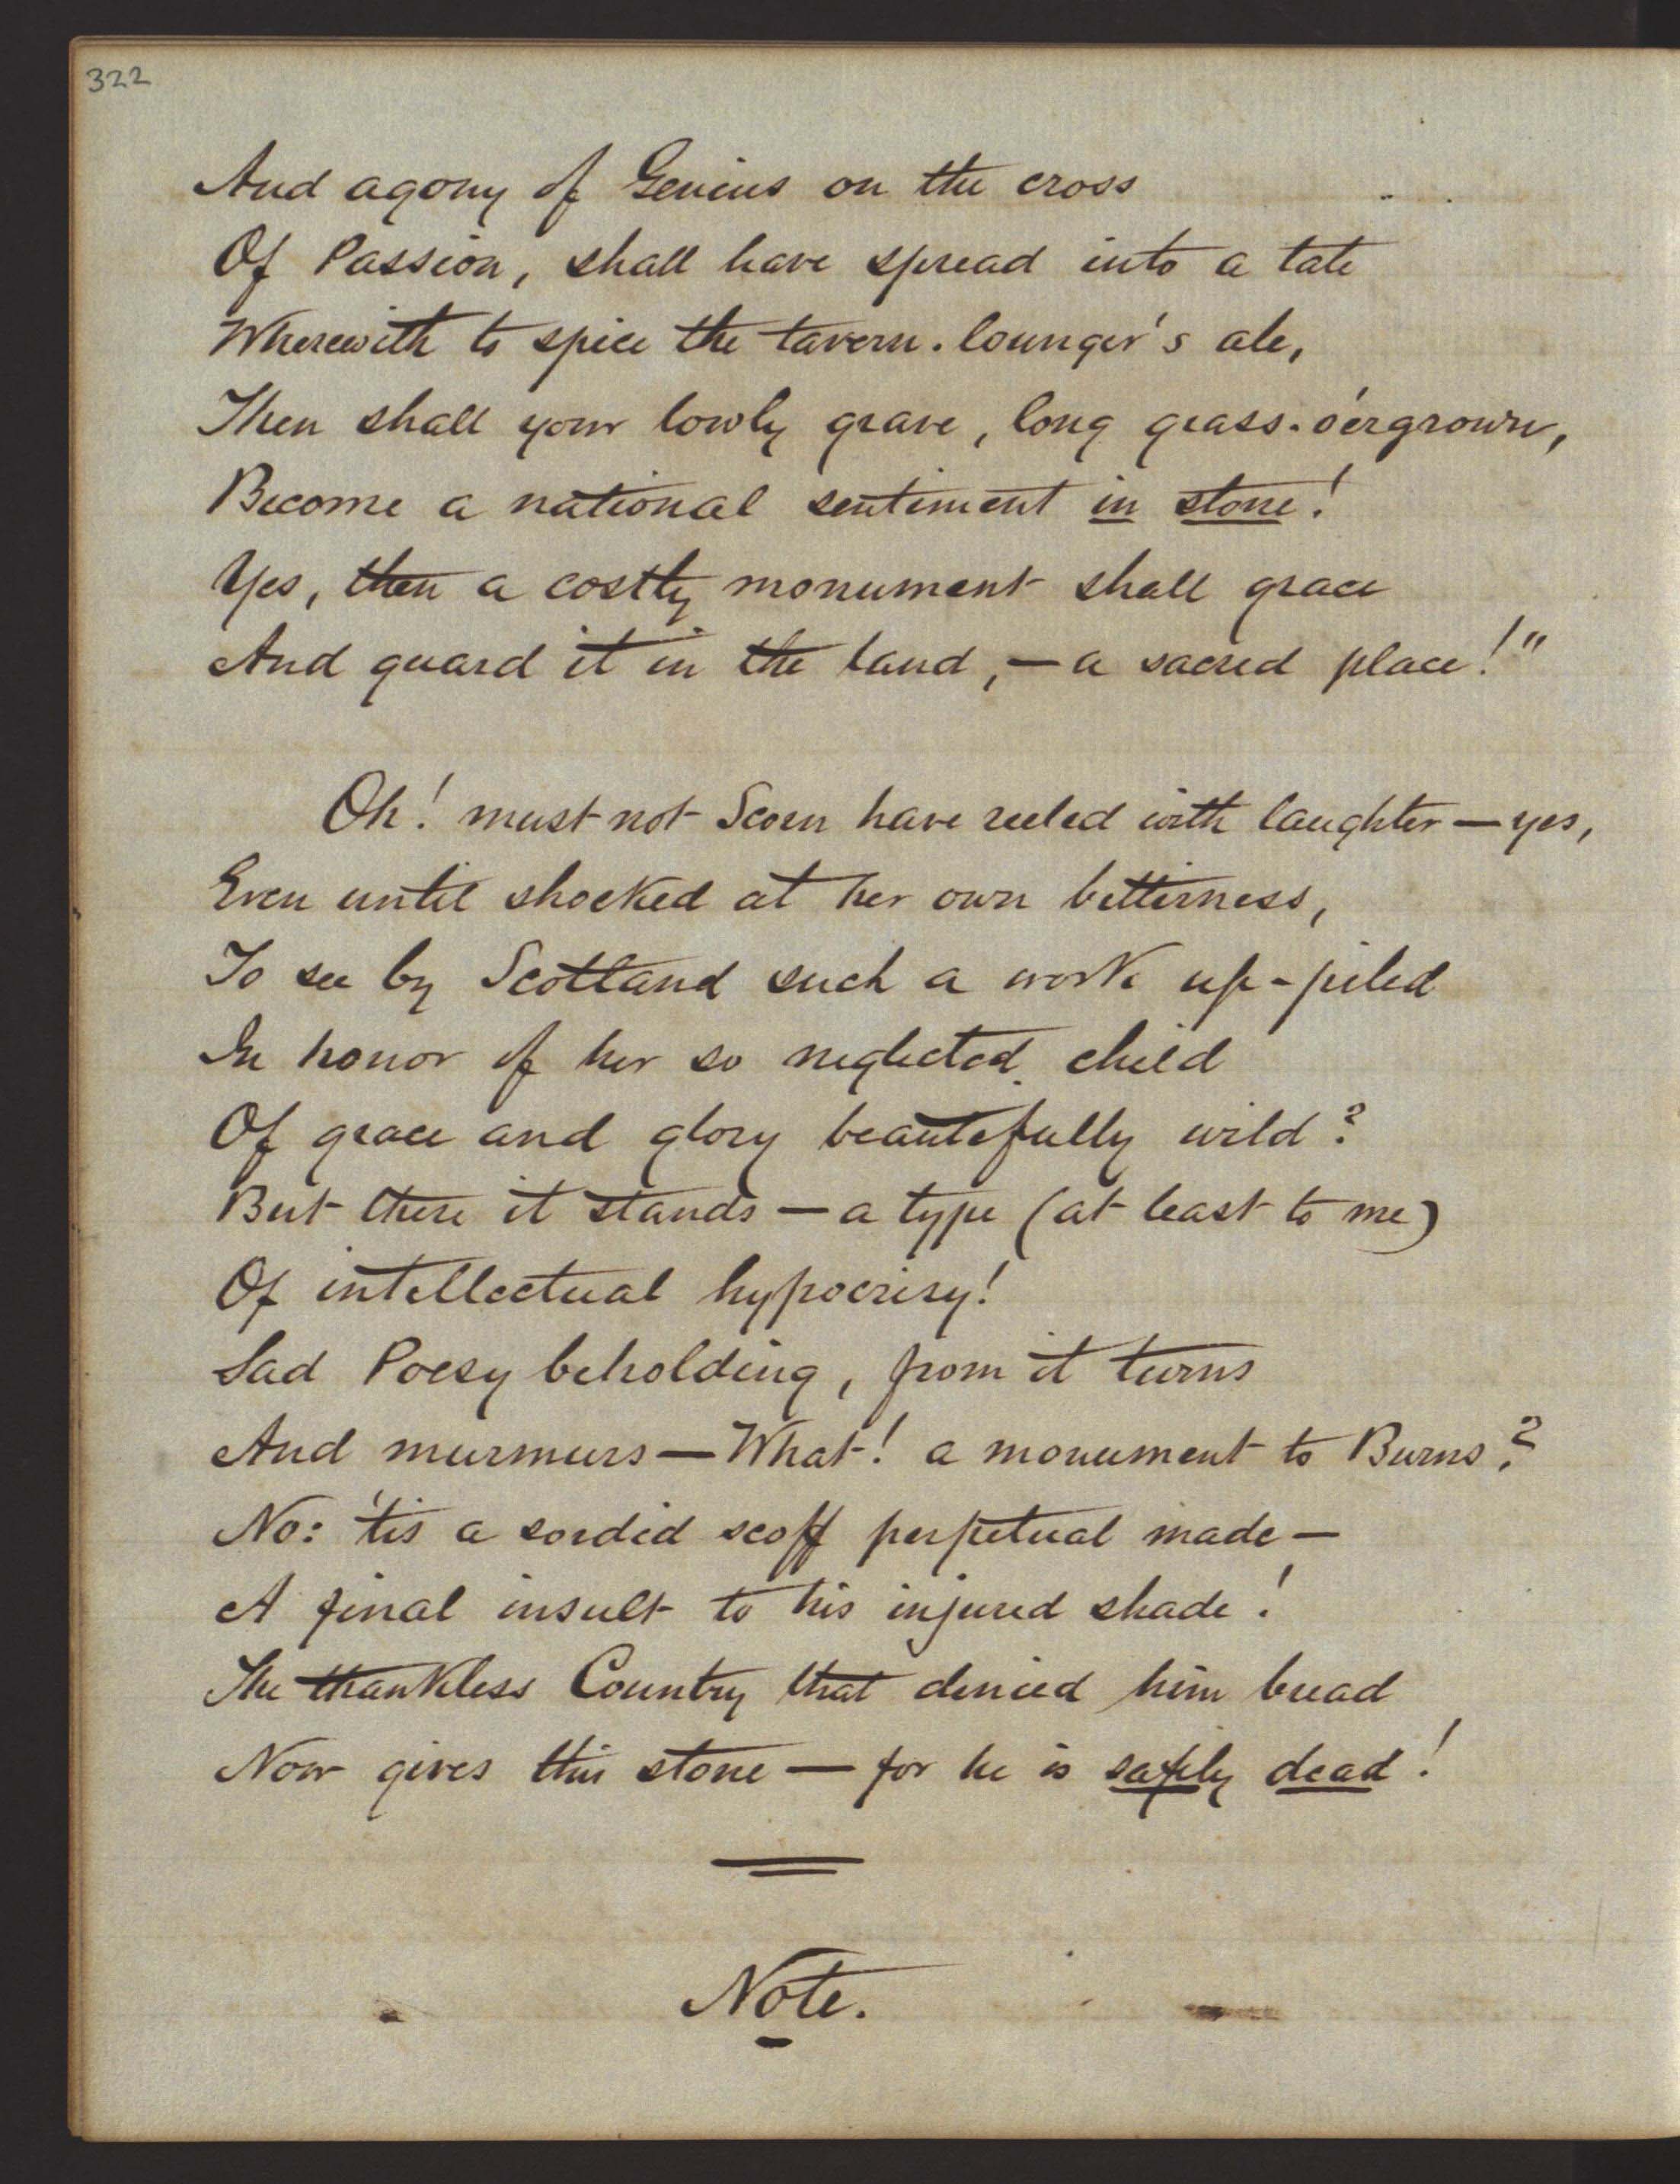 322
And agony of Genius on the cross
Of Passion, shall have spread into a tale
Wherewith to spice the tavern-lounger's ale,
Then shall your lowly grave, long grass-o'ergrown,
Become a national sentiment in stone!
Yes, then a costly monument shall grace
And guard it in the land, — a sacred place!"
Oh! must not Scorn have reeled with laughter — yes,
Even until shocked at her own bitterness,
To see by Scotland such a work up-piled
In honor of her so neglected child
Of grace and glory beautifully wild?
But there it stands — a type (at least to me)
Of intellectual hypocrisy!
Sad Poesy beholding, from it turns
And murmurs — What! a monument to Burns?
No: 'tis a sordid scoff perpetual made —
A final insult to his injured shade!
The thankless Country that denied him bread
Now gives this stone — for he is safely dead!
Note.